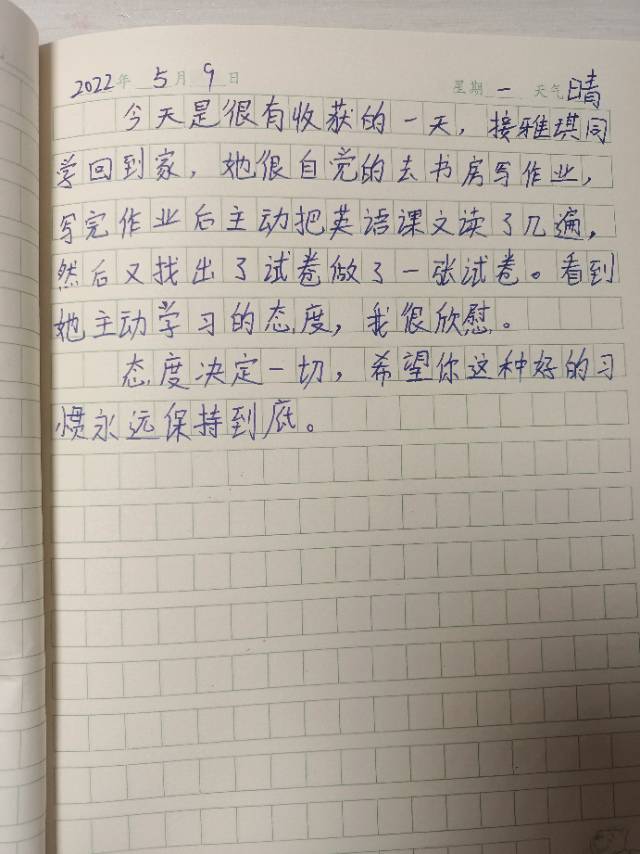 2022年 5月 9日 星期 一 天气 晴
今天是很有收获的一天，接雅琪同
学回到家，她很自觉的去书房写作业，
写完作业后主动把英语课文读了几遍，
然后又找出了试卷做了一张试卷。看到
她主动学习的态度，我很欣慰。
态度决定一切，希望你这种好的习
惯永远保持到底。